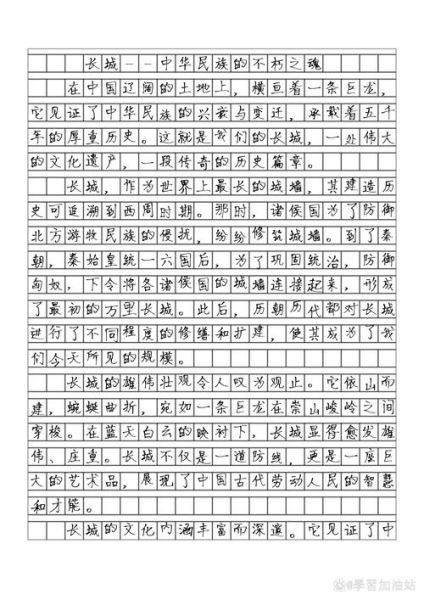 长城--中华民族的不朽之魂
在中国辽阔的土地上，横亘着一条巨龙，
它见证了中华民族的兴衰与变迁，承载着五千
年的厚重历史。这就是我们的长城，一处伟大
的文化遗产，一段传奇的历史篇章。
长城，作为世界上最长的城墙，其建造历
史可追溯到西周时期。那时，诸侯国为了防御
北方游牧民族的侵扰，纷纷修筑城墙。到了秦
朝，秦始皇统一六国后，为了巩固统治，防御
匈奴，下令将各诸侯国的城墙连接起来，形成
了最初的万里长城。此后，历朝历代都对长城
进行了不同程度的修缮和扩建，使其成为了我
们今天所见的规模。
长城的雄伟壮观令人叹为观止。它依山而
建，蜿蜒曲折，宛如一条巨龙在崇山峻岭之间
穿梭。在蓝天白云的映衬下，长城显得愈发雄
伟、庄重。长城不仅是一道防线，更是一座巨
大的艺术品，展现了中国古代劳动人民的智慧
和才能。
长城的文化内涵丰富而深邃。它见证了中
學習加油站